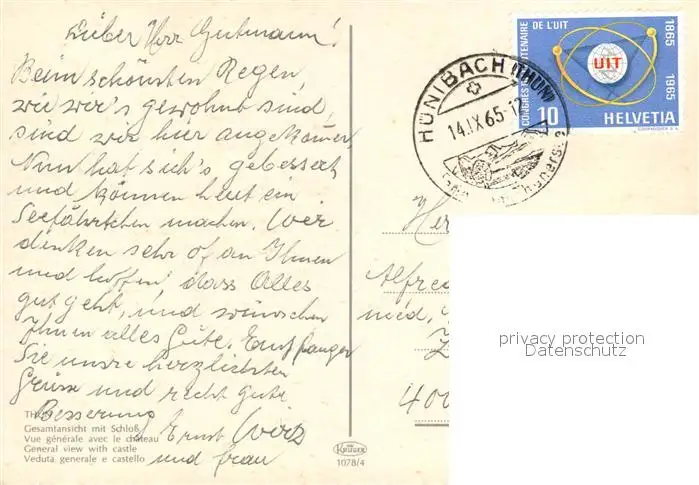 Lieber Herr Gutmann!
Beim schönsten Regen,
wie wir's gewohnt sind,
sind wir hier angekommen,
Nun hat sich's gebessert
und können heut ein
Seefährtchen machen. Wir
dinken sehr of an Ihnen
und hoffen, dass Alles
gut geht, und wünschen
Ihnen alles Gute. Empfangen
Sie unsre herzlichsten
Grüsse und recht gute
Besserung
Ernst Wirz
und frau
Gesamtansicht mit Schloß
Vue générale avec le château
General view with castle
Veduta generale e castello
KRÜGER
1078/4
HÜNIBACH (THUN)
14.IX.65-
CONGRES CENTENAIRE
DE L'UIT
1865
1965
UIT
10
HELVETIA
COURVOISIER S.A.
Alfred
med.
400
privacy protection
Datenschutz